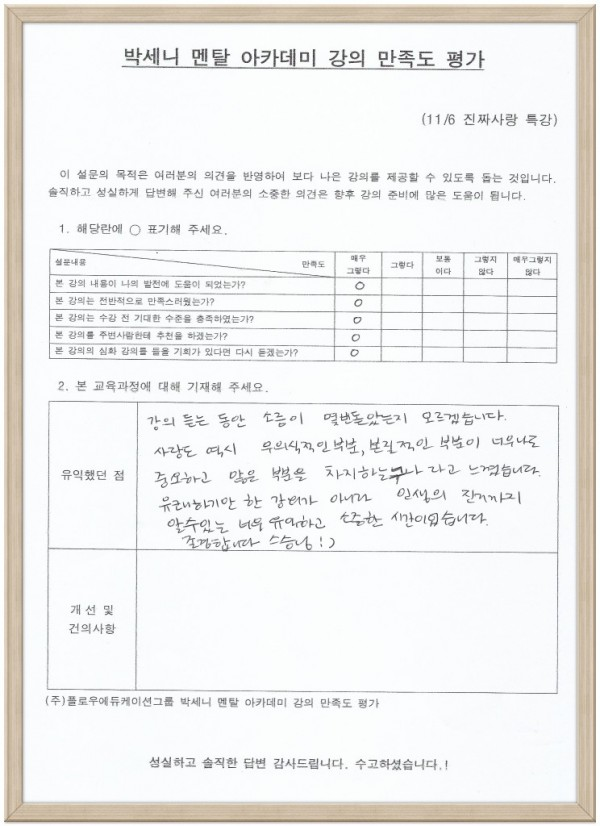 박세니 멘탈 아카데미 강의 만족도 평가
(11/6 진짜사랑 특강)
이 설문의 목적은 여러분의 의견을 반영하여 보다 나은 강의를 제공할 수 있도록 돕는 것입니다.
솔직하고 성실하게 답변해 주신 여러분의 소중한 의견은 향후 강의 준비에 많은 도움이 됩니다.
1. 해당란에 ○ 표기해 주세요.
설문내용 만족도 매우 그렇다 그렇다 보통 이다 그렇지 않다 매우그렇지 않다
본 강의 내용이 나의 발전에 도움이 되었는가? ○
본 강의는 전반적으로 만족스러웠는가? ○
본 강의는 수강 전 기대한 수준을 충족하였는가? ○
본 강의를 주변사람한테 추천을 하겠는가? ○
본 강의의 심화 강의를 들을 기회가 있다면 다시 듣겠는가? ○
2. 본 교육과정에 대해 기재해 주세요.
유익했던 점
강의 듣는 동안 소름이 몇번돋았는지 모르겠습니다.
사랑도 역시 무의식적인부분, 본질적인 부분이 너무나도
중요하고 많은 부분을 차지하는구나 라고 느꼈습니다.
유쾌하기만 한 강의가 아니라 인생의 진리까지
알수있는 너무 유익하고 소중한 시간이었습니다.
존경합니다 스승님 :)
개선 및
건의사항
(주)플로우에듀케이션그룹 박세니 멘탈 아카데미 강의 만족도 평가
성실하고 솔직한 답변 감사드립니다. 수고하셨습니다.!